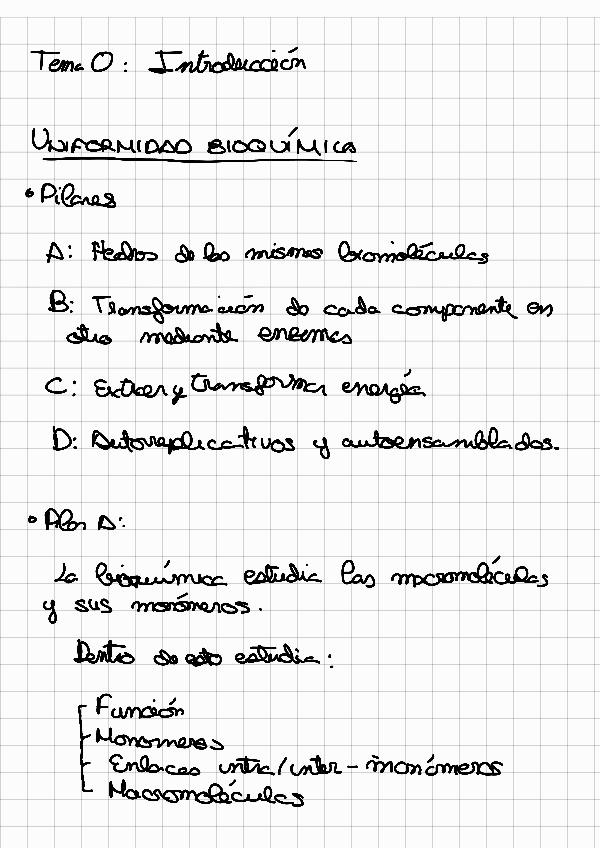 Tema 0: Introducción
UNIFORMIDAD BIOQUÍMICA
• Pilares
A: Hechos de las mismas biomoléculas
B: Transformación de cada componente en
otro mediante enzimas
C: Extraer y transformar energía
D: Autorreplicativos y autoensamblados.
• Pilar A:
La bioquímica estudia las macromoléculas
y sus monómeros.
Dentro de esto estudia:
Función
Monomeros
Enlaces intra/inter-monómeros
Macromoléculas